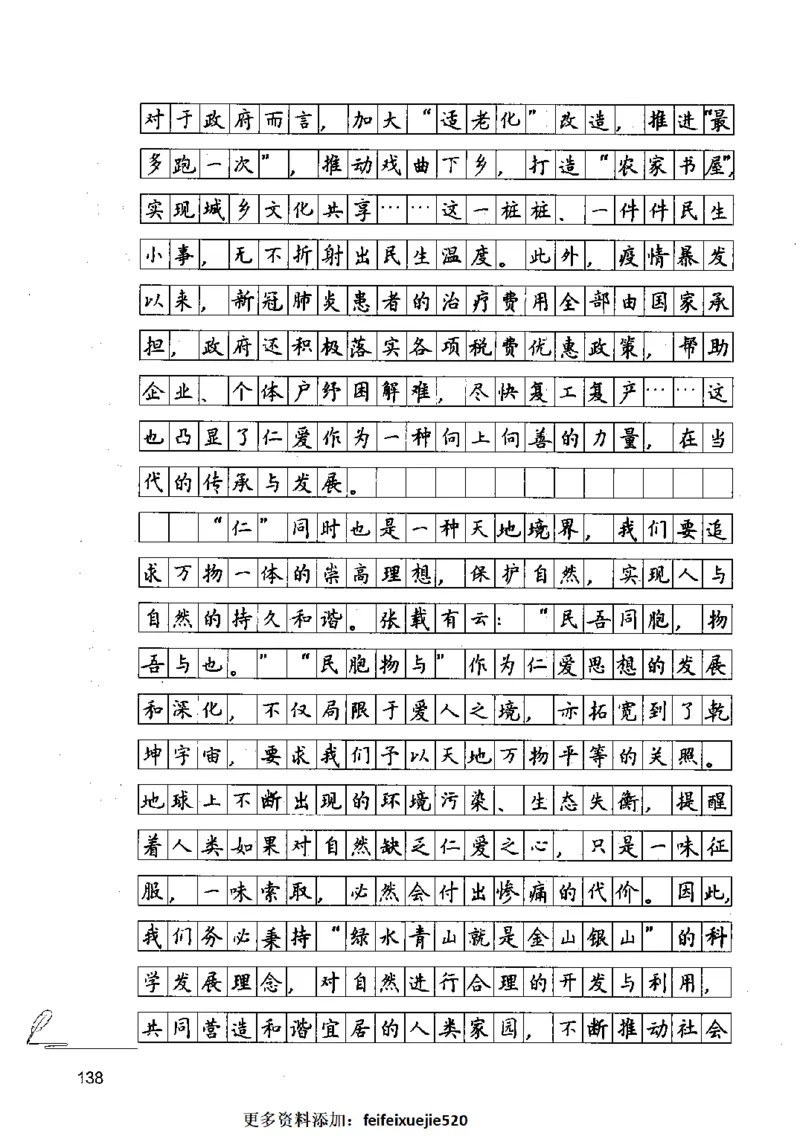 对于政府而言，加大“适老化”改造，推进“最
多跑一次”，推动戏曲下乡，打造“农家书屋”，
实现城乡文化共享……这一桩桩、一件件民生
小事，无不折射出民生温度。此外，疫情暴发
以来，新冠肺炎患者的治疗费用全部由国家承
担，政府还积极落实各项税费优惠政策，帮助
企业、个体户纾困解难，尽快复工复产……这
也凸显了仁爱作为一种向上向善的力量，在当
代的传承与发展。
“仁”同时也是一种天地境界，我们要追
求万物一体的崇高理想，保护自然，实现人与
自然的持久和谐。张载有云：“民吾同胞，物
吾与也。”“民胞物与”作为仁爱思想的发展
和深化，不仅局限于爱人之境，亦拓宽到了乾
坤宇宙，要求我们予以天地万物平等的关照。
地球上不断出现的环境污染、生态失衡，提醒
着人类如果对自然缺乏仁爱之心，只是一味征
服，一味索取，必然会付出惨痛的代价。因此，
我们务必秉持“绿水青山就是金山银山”的科
学发展理念，对自然进行合理的开发与利用，
共同营造和谐宜居的人类家园，不断推动社会
138
更多资料添加：feifeixuejie520